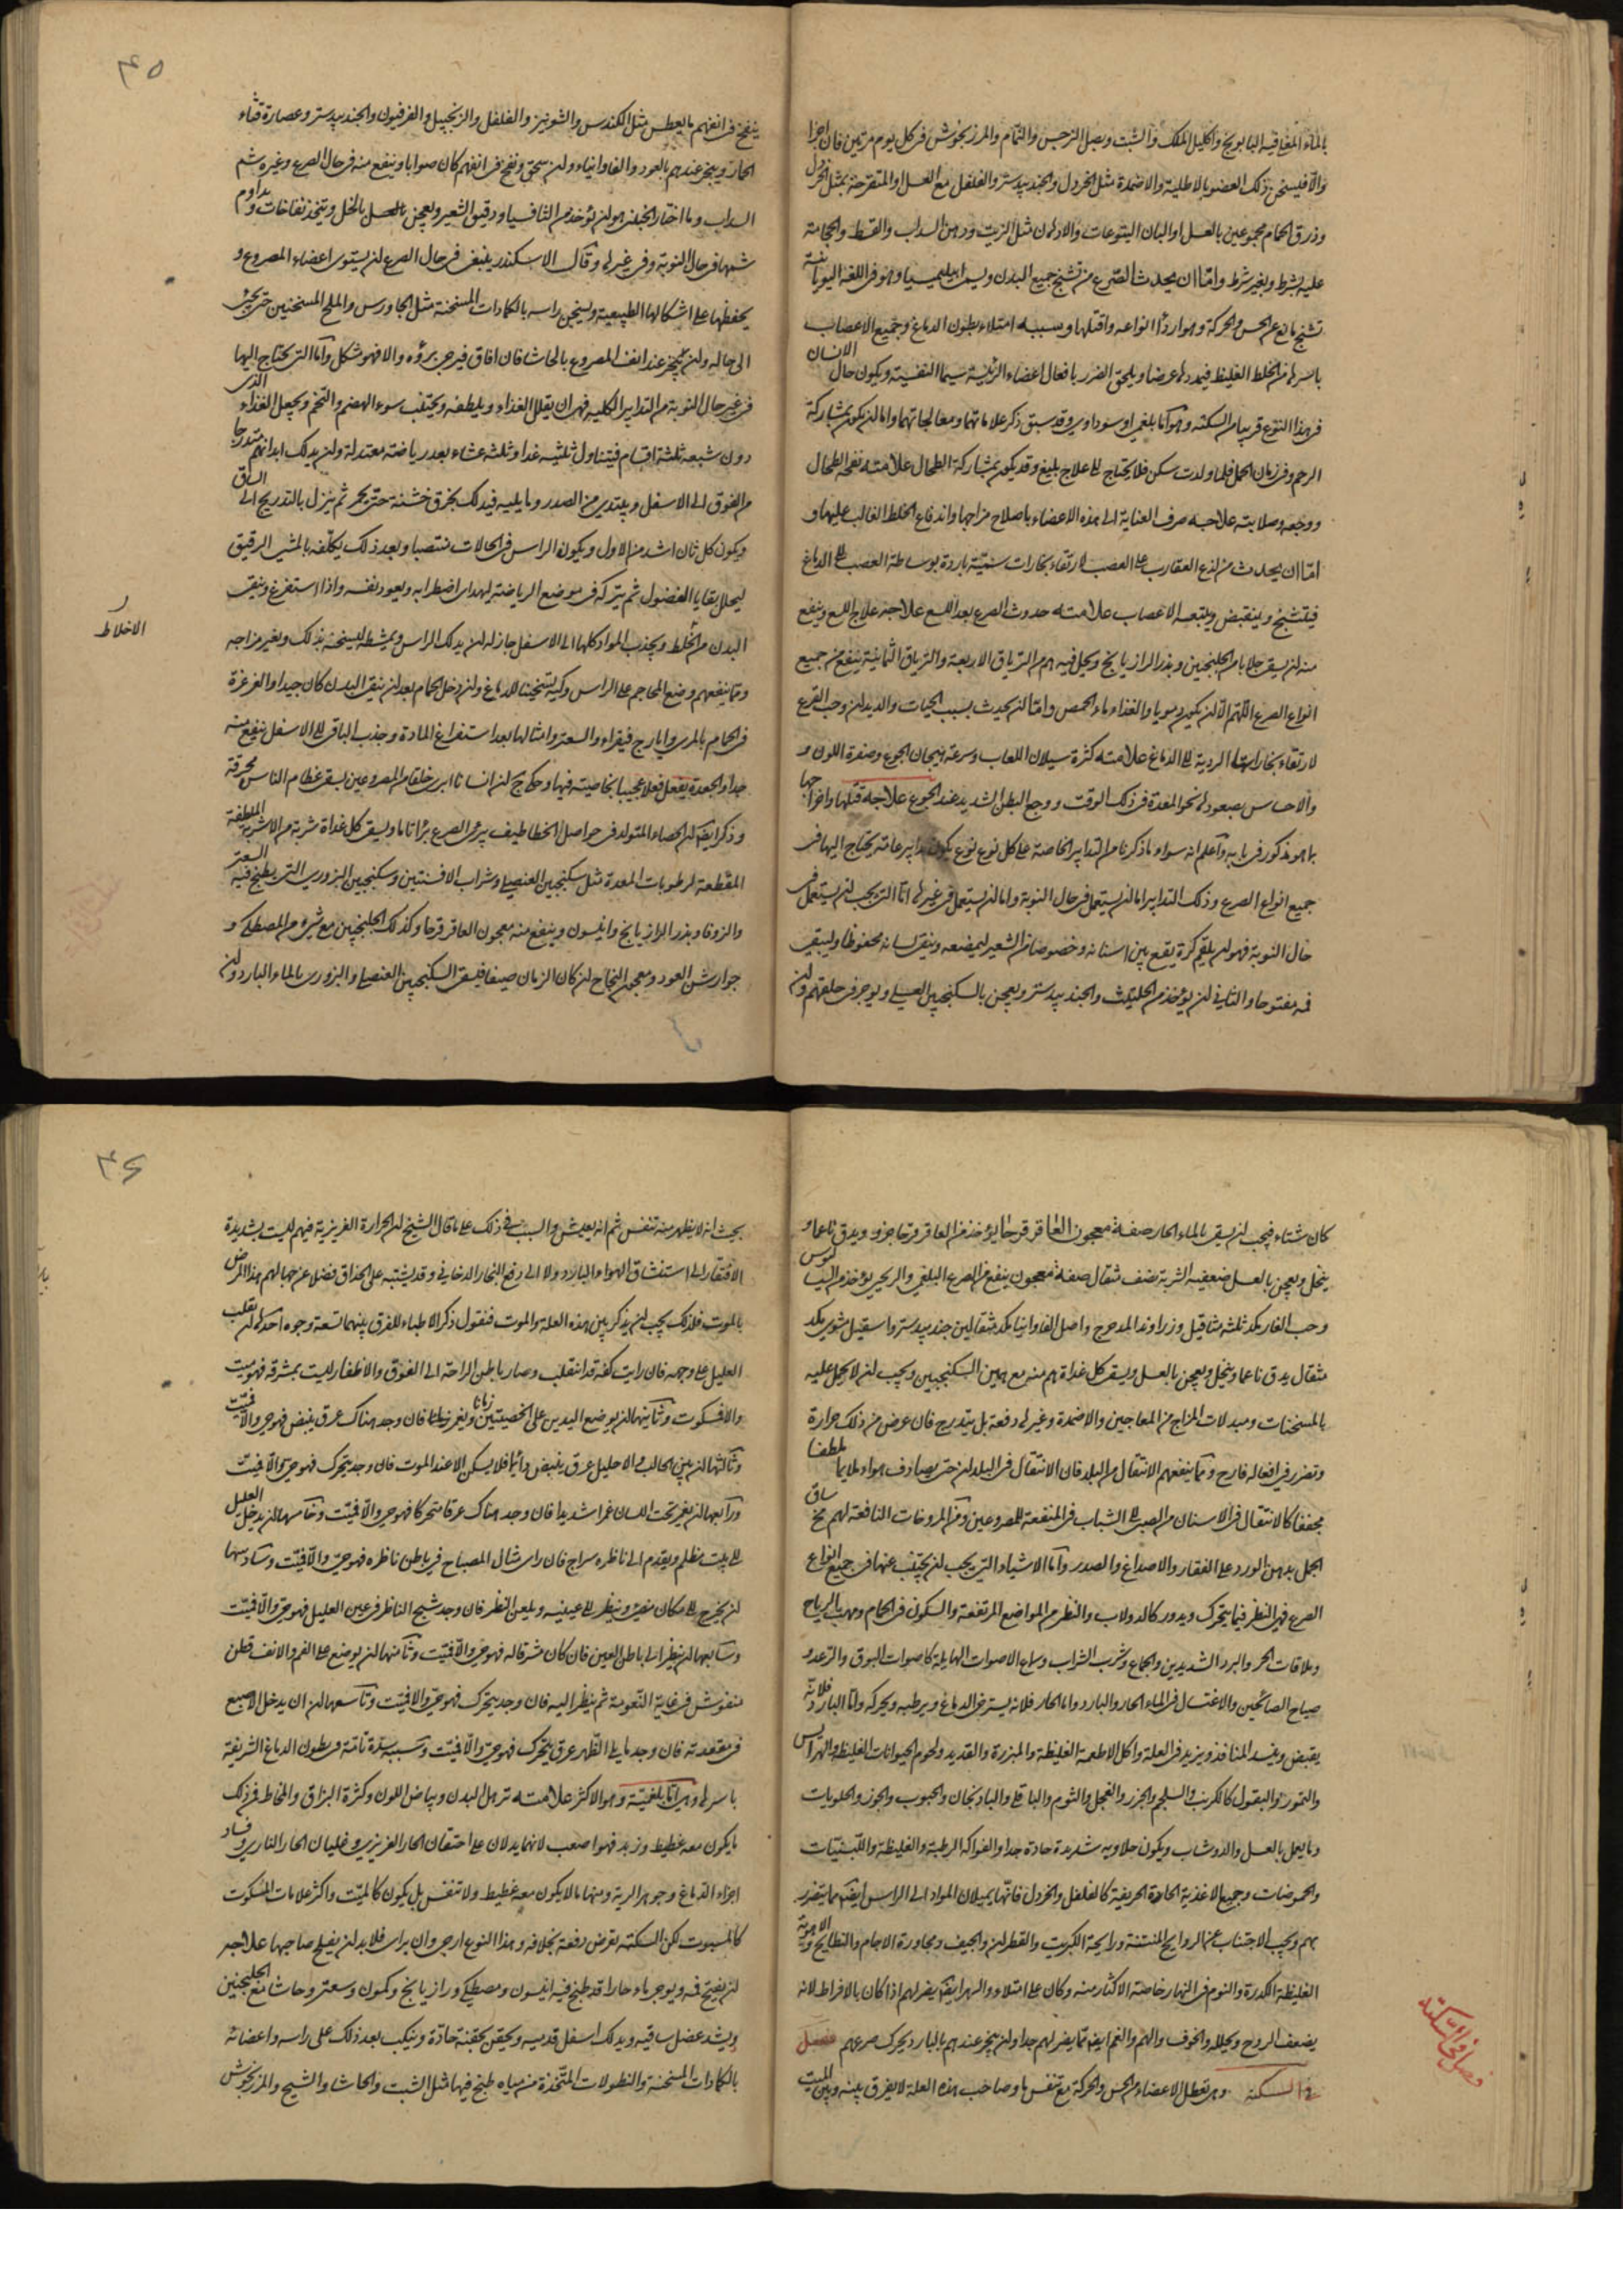 بالماء المغلي فيه البابونج واكليل الملك والشبت وبصل النرجس والنمام والمرزنجوش في كل يوم مرتين فان اجزا
والا فيسخن ذلك العضو بالاطلية والاضمدة مثل الخردل والجندبيدستر والفلفل مع العسل او المتقرحة بمثل الخردل
وذرق الحمام معجوعين بالعسل او البان اليتوعات والادهان مثل الزيت ودهن السداب والقسط والحجامة
عليه بشرط وبغير شرط واما ان يحدث الصرع من تشنج جميع البدن ويسمى ابيليميسيا وهو في اللغة اليونانية
تشنج مانع عن الحس والحركة وهو اردأ انواعه واقتلها وسببه امتلاء بطون الدماغ وجميع الاعصاب
باسرها من الخلط الغليظ فيمددها عرضا ويلحق الضرر بافعال اعضاء الرئيسة سيما النفسية ويكون حال الانسان
في هذا النوع قريبا من السكتة وهو اما بلغمي او سوداوي وقد سبق ذكر علاماتهما ومعالجاتهما واما ان يكون بمشاركة
الرحم وفي زمان الحمل فلما ولدت سكن فلا يحتاج الى علاج بليغ وقد يكون بمشاركة الطحال علامته نفخة الطحال
ووجعه وصلابته علاجه صرف العناية الى هذه الاعضاء باصلاح مزاجها واندفاع الخلط الغالب عليها و
اما ان يحدث من لذع العقارب على العصب لارتقاء بخارات سمية باردة بوساطة العصب الى الدماغ
فيتشنج وينقبض ويتبعه الاعصاب علامته حدوث الصرع بعد اللسع علاجه علاج اللسع وينفع
منه ان يسقى جلابا من الجلنجبين وبذر الرازيانج ويحل فيه درهم من الترياق الاربعة والترياق الثمانية ينفع من جميع
انواع الصرع اللهم الا ان يكون دمويا والغذاء ماء الحمص واما ان يحدث بسبب الحيات والديدان وحب القرع
لارتقاء بخاراتها الردية الى الدماغ علامته كثرة سيلان اللعاب وسرعة هيجان الجوع وصفرة اللون و
والاحساس بصعودها نحو المعدة في ذلك الوقت ووجع البطن الشديد عند الجوع علاجه قتلها واخراجها
بما هو مذكور في بابه واعلم انه سواء ما ذكرنا من التدابير الخاصة على كل نوع نوع يكون تدابير عامة يحتاج اليها في
جميع انواع الصرع وذلك التدابير اما ان يستعمل في حال النوبة واما ان يستعمل في غيرها اما التي يجب ان يستعمل في
حال النوبة فهو ان يلقم كرة يقع بين اسنانه وخصوصا من الشعير ليمضغه ويبقى لسانه محفوظا وليبقى
فمه مفتوحا والثاني ان يؤخذ من الحلتيث والجندبيدستر ويعجن بالسكنجبين العسلي ويوجر في حلقهم وان
٤٥
ينفخ في انفهم ما يعطس مثل الكندس والشونيز والفلفل والزنجبيل والفرفيون والجندبيدستر وعصارة قثاء
الحمار ويبخر عندهم بالعود والفاوانيا ولو سحق ونفخ في انفهم كان صوابا وينفع منه في حال الصرع وغيره شم
السداب وما اختار الجبلي هو ان يؤخذ من الثافسيا ودقيق الشعير ويعجن بالعسل بالخل ويتخذ نفاخات ويداوم
شمها في حال النوبة وفي غيرها وقال الاسكندر ينبغي في حال الصرع ان يستوي اعضاء المصروع و
يحفظها على اشكالها الطبيعية ويسخن راسه بالكمادات المسخنة مثل الجاورس والملح المسخنين حتى يجيء
الى حاله وان يبخر عند انف المصروع بالحاشا فان افاق فيرجى برؤه والا فهو شكل واما التي يحتاج اليها
في غير حال النوبة من التدابير الكلية فهو ان يقلل الغذاء ويلطفه ويجتنب سوء الهضم والتخم ويجعل الغذاء الذي
دون شبعه ثلثة اقسام فيتناول ثلثيه غدا وثلثه عشاء بعد رياضة معتدلة وان يدلك ابدانهم متدرجا
من الفوق الى الاسفل ويبتدئ من الصدر وما يليه فيدلك بخرق خشنة حتى يحمر ثم ينزل بالتدريج الى الساق
ويكون كل ثان اشد من الاول ويكون الراس في الحالات منتصبا وبعد ذلك يكلفه بالمشي الرقيق
ليحلل بقايا الفضول ثم يتركه في موضع الرياضة ليهدأ اضطرابه ويعود نفسه واذا استفرغ ونقى
البدن من الخلط ويجذب المواد كلها الى الاسفل جاز له ان يدلك الراس ويمشطه ليسخنه بذلك ويغير مزاجه
الاخلاط
ومما ينفعهم وضع المحاجم على الراس وكيه لتسخينا للدماغ وان دخل الحمام بعد ان ينقى البدن كان جيدا والغرغرة
في الحمام بالمري وايارج فيقراء والسعتر وامثالها بعد استفراغ المادة وجذب الباقي الى الاسفل ينفع منه
جدا والجعدة يفعل فعلا عجيبا بخاصيته فيها وحكى ج ان انسانا ابرى خلقا من المصروعين بسقي عظام الناس محرقة
وذكر ايضا ان الحصاء المتولد في حواصل الخطاطيف يبرئ الصرع برأ تاما ويسقى كل غداة شربة من الاشربة الملطفة
المقطعة لرطوبات المعدة مثل سكنجبين العنصلي وشراب الافسنتين وسكنجبين البزوري التي يطبخ فيه السعتر
والزوفا وبذر الرازيانج وانيسون وينفع منه معجون العاقرقرحا وكذلك الجلنجبين مع شيء من المصطكي و
جوارش العود ومعجون النجاح ان كان الزمان صيفا فليسقى السكنجبين العنصلي والبزوري بالماء البارد وان
كان شتاء فيجب ان يسقى بالماء الحار صفة معجون العاقرقرحا يؤخذ من العاقرقرحا جزو ويدق ناعما و
ينخل ويعجن بالعسل ضعفيه الشربة نصف مثقال صفة معجون ينفع من الصرع البلغمي والريحي يؤخذ من السيساليوس
وحب الغار بكد ثلثة مثاقيل وزراوند المدحرج واصل الفاوانيا بكد مثقالين جندبيدستر واسقيل مشوي بكد
مثقال يدق ناعما وينخل ويعجن بالعسل ويسقى كل غداة درهم منه مع هذين السكنجبين ويجب ان لا يحمل عليه
بالمسخنات ومبدلات المزاج من المعاجين والاضمدة وغيرها دفعة بل بتدريج فان عرض من ذلك حرارة
وتضرر في افعاله فارح ومما ينفعهم الانتقال من البلد فان الانتقال في البلدان حتى يصادف هواء ملايما ملطفا
مجففا كالانتقال في الاسنان من الصبى الى الشباب في المنفعة للمصروعين ومن المروخات النافعة لهم مخ ساق
الجمل بدهن الورد على الفقار والاصداغ والصدر واما الاشياء التي يجب ان يجتنب عنها في جميع انواع
الصرع فهي النظر فيما يتحرك ويدور كالدولاب والنظر من المواضع المرتفعة والسكون في الحمام ومهب الرياح
وملاقات الحر والبرد الشديدين والجماع وشرب الشراب وسماع الاصوات الهايلة كاصوات البوق والرعد و
صياح الصائحين والاغتسال في الماء الحار والبارد واما الحار فلانه يسترخي الدماغ ويرطبه ويحركه واما البارد فلانه
يقبض ويسد المنافذ ويزيد في العلة واكل الاطعمة الغليظة والمبردة والقديد ولحوم الحيوانات الغليظة والهرايس
والتمور والبقول كالكرنب والسلجم والجزر والفجل والثوم والباقلى والباذنجان والحبوب والجوز والحلويات
وما يعمل بالعسل والدوشاب ويكون حلاويه شديدة حادة جدا والفواكه الرطبة والغليظة واللبنيات
والحموضات وجميع الاغذية الحادة الحريفة كالفلفل والخردل فانها يميلان المواد الى الراس ايضا مما يتضرر
بهم ويجب الاجتناب عن الروايح المنتنة ورايحة الكبريت والقطران والجيف ومجاورة الاجام والنطايح والاهوية
الغليظة الكدرة والنوم في النهار خاصة الاكثار منه وكان على امتلاء والسهر ايضا يضر لهم اذا كان بالافراط لانه
يضعف الروح ويحلله والخوف والهم والغم ايضا مما يضر لهم جدا وان يبخر عندهم بالبارد يحرك صرعهم فصل
في السكتة وهي تعطل الاعضاء عن الحس والحركة مع تنفس ما وصاحب هذه العلة لا يفرق بينه وبين الميت
فصل في السكتة
٤٦
بحيث انه لا يظهر منه تنفس ثم انه يعيش والسبب في ذلك على ما قال الشيخ ان الحرارة الغريزية فيهم ليست بشديدة
الافتقار الى استنشاق الهواء البارد ولا الى دفع البخار الدخاني وقد يشتبه على الحذاق فضلا عن جهالهم هذا المرض
بالموت فلذلك يجب ان يذكر بين هذه العلة والموت فنقول ذكر الاطباء للفرق بينهما تسعة وجوه احدها ان يقلب
العليل على وجهه فان رايت كفه قد انقلب وصار باطن الراحة الى الفوق والاظفار ليست بمشرقة فهو ميت
والا فسكوت وثانيها ان يوضع اليدين على الخصيتين زمانا ويغمز فان وجد هناك عرق ينبض فهو حي والا فميت
وثالثها ان بين الحالب والاحليل عرق ينبض دائما فلا يسكن الا عند الموت فان وجد يتحرك فهو حي والا فميت
ورابعها ان يغمز تحت اللسان غمزا شديدا فان وجد هناك عرقا متحركا فهو حي والا فميت وخامسها ان يدخل العليل
الى بيت مظلم ويقدم الى ناظره سراج فان راى مثال المصباح في باطن ناظره فهو حي والا فميت وسادسها
ان يخرج الى مكان مضيء وينظر الى عينيه ويمعن النظر فان وجد شبح الناظر في عين العليل فهو حي والا فميت
وسابعها ان ينظر الى باطن العين فان كان مشرقا له فهو حي والا فميت وثامنها ان يوضع على الفم والانف قطن
منفوش في غاية النعومة ثم ينظر اليه فان وجد يتحرك فهو حي والا فميت وتاسعها ان يدخل الاصبع
في مقعدته فان وجد ما يلي الظهر عرق يتحرك فهو حي والا فميت وسببه سدة تامة في بطون الدماغ الشريفة
باسرها وهي اما بلغمية وهو الاكثر علامته ترهل البدن وبياض اللون وكثرة البزاق والمخاط فمن ذلك
ما يكون معه غطيط وزبد فهو اصعب لانهما يدلان على احتقان الحار الغريزي وغليان الحار الناري وفساد
اجزاء الدماغ وجوهر الرية ومنها ما لا يكون معه غطيط ولا تنفس بل يكون كالميت واكثر علامات المسكوت
كالمسبوت لكن السكتة تعرض دفعة بخلافه وهذا النوع ارجى وان برأ فلا بد ان يفلج صاحبها علاجه
ان يفتح فمه ويوجر ماء حارا قد طبخ فيه انيسون ومصطكي ورازيانج وكمون وسعتر وحاشا مع الجلنجبين
ويشد عضل ساقيه ويدلك اسفل قدميه ويحقن بحقنة حادة وينكب بعد ذلك على راسه واعضائه
بالكمادات المسخنة والنطولات المتخذة من مياه طبخ فيها مثل الشبت والحاشا والشيح والمرزنجوش